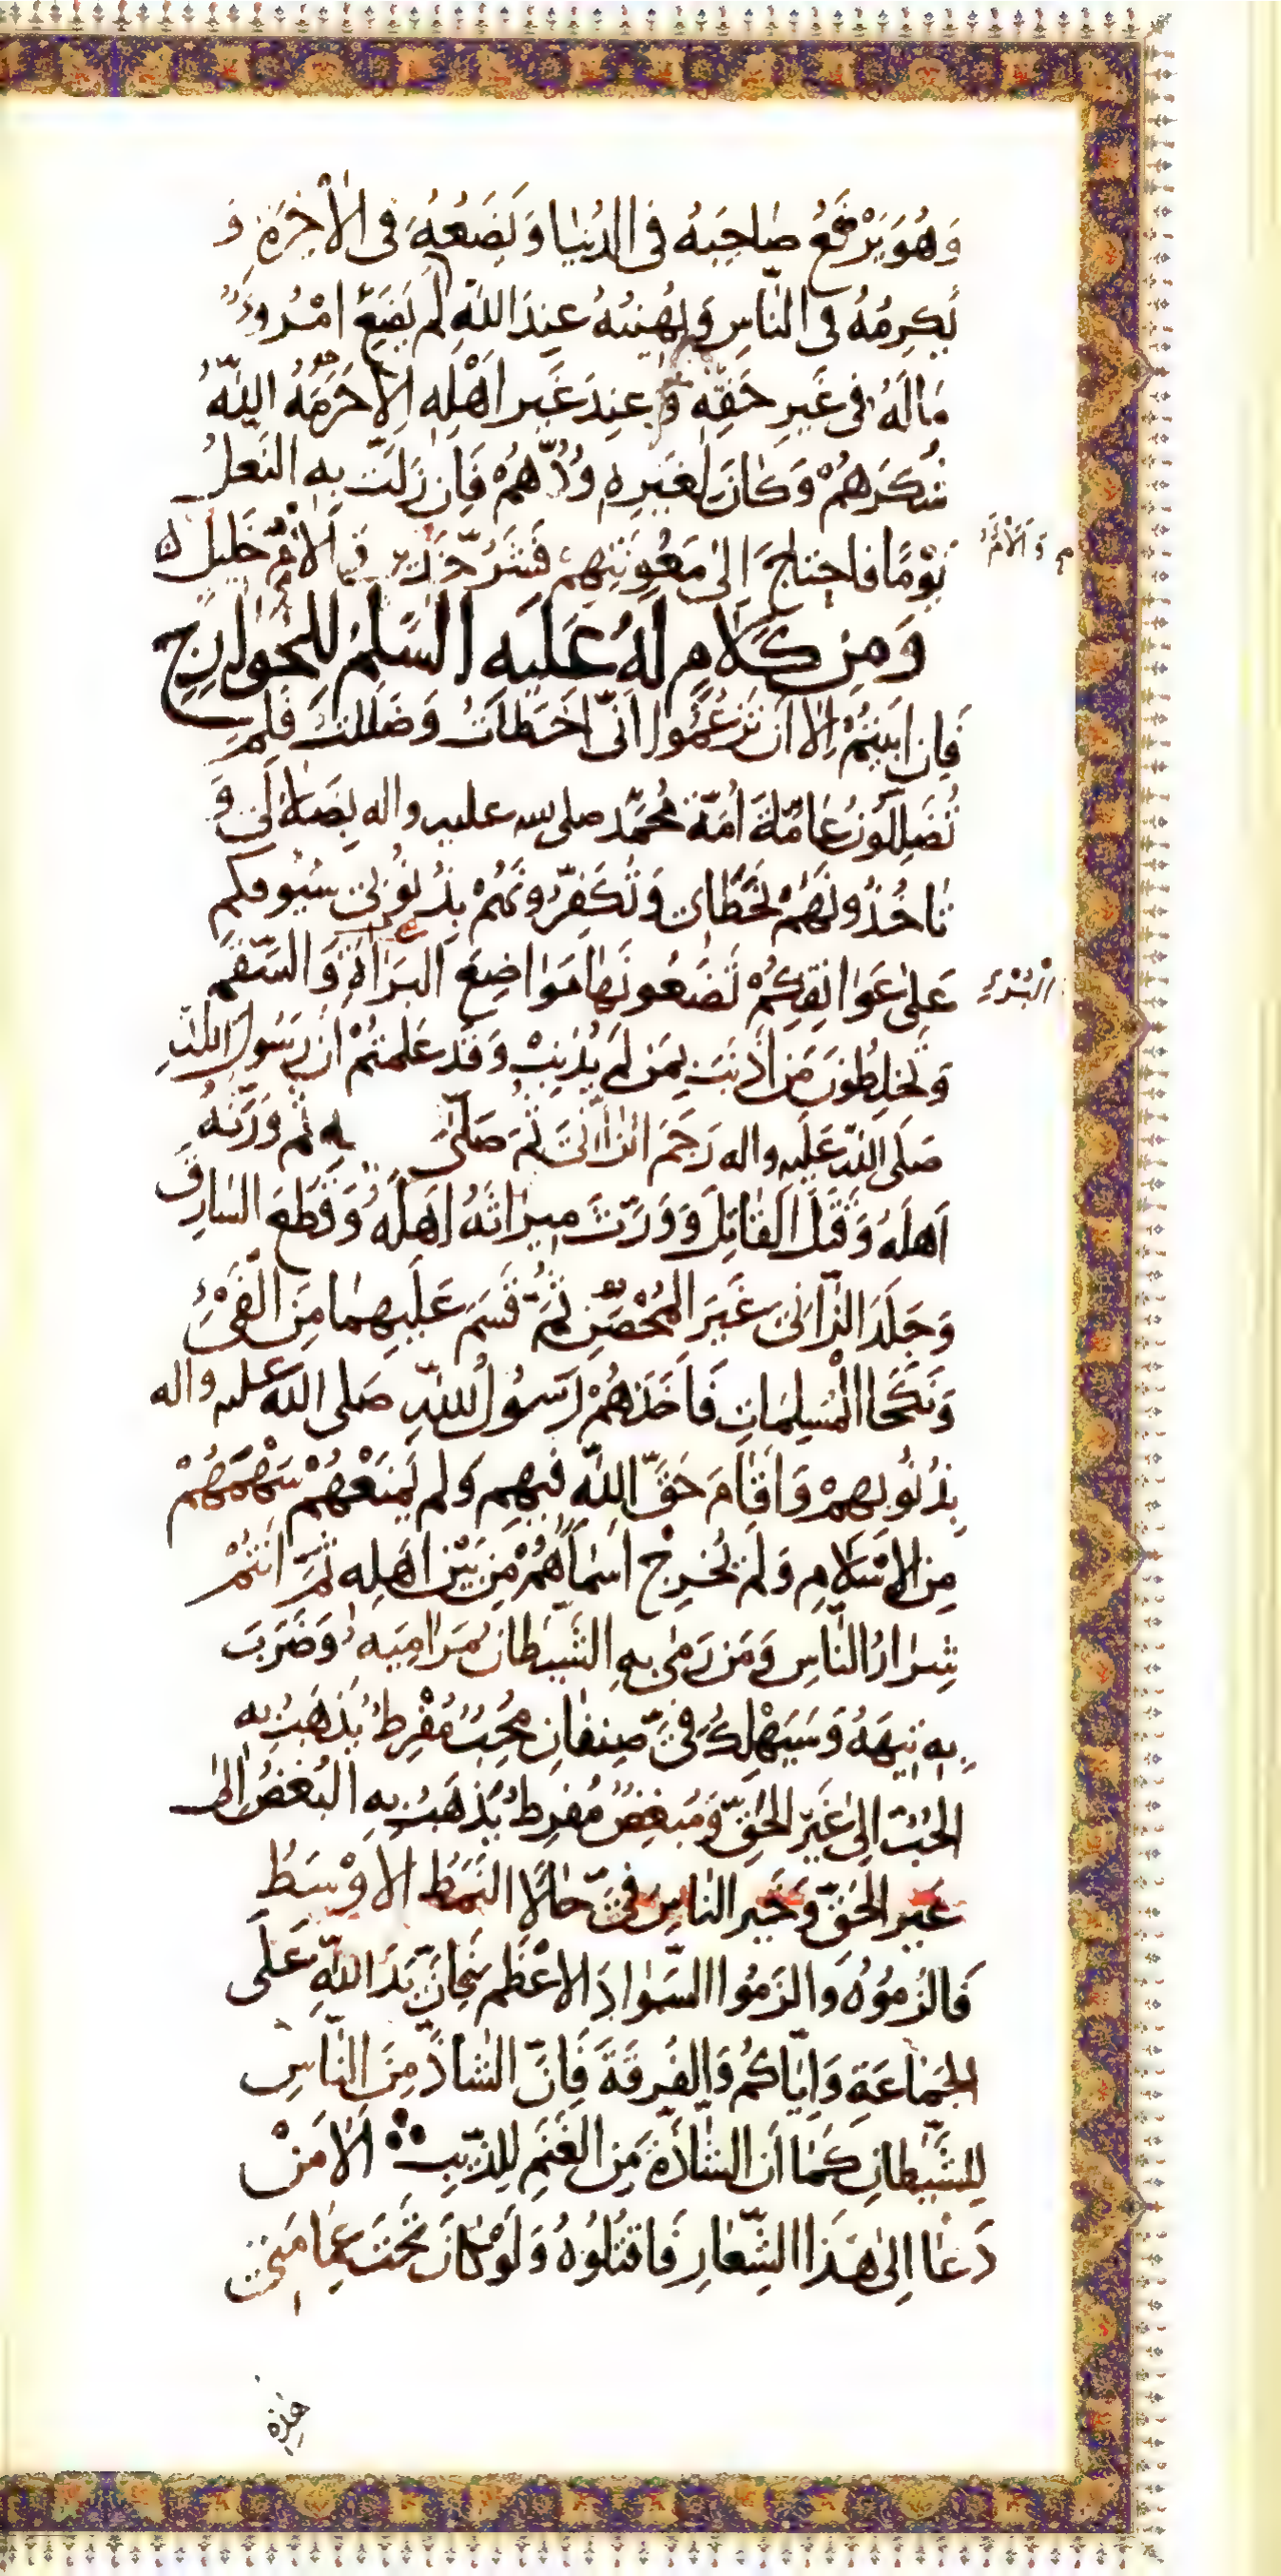 وَهُوَ يَرْفَعُ صَاحِبَهُ فِى الدُّنْيَا وَيَضَعُهُ فِى الْاٰخِرَةِ وَ
يُكْرِمُهُ فِى النَّاسِ وَيُهِينُهُ عِنْدَ اللّٰهِ لَمْ يَضَعْ امْرُؤٌ
مَالَهُ فِى غَيْرِ حَقِّهِ وَعِنْدَ غَيْرِ اَهْلِهِ اِلَّا حَرَمَهُ اللّٰهُ
شُكْرَهُمْ وَكَانَ لِغَيْرِهِ وُدُّهُمْ فَاِنْ زَلَّتْ بِهِ النَّعْلُ
يَوْمًا فَاحْتَاجَ اِلىٰ مَعُونَتِهِمْ فَشَرُّ خَدِينٍ وَاَلْأَمُ خَلِيلٍ
وَمِنْ كَلَامٍ لَهُ عَلَيْهِ السَّلٰمُ لِلْخَوَارِجِ
فَاِنْ اَبَيْتُمْ اِلَّا اَنْ تَزْعُمُوا اَنِّى اَخْطَأْتُ وَضَلَلْتُ فَلِمَ
تُضَلِّلُونَ عَامَّةَ اُمَّةِ مُحَمَّدٍ صلى الله عليه واله بِضَلَالِى وَ
تَاخُذُونَهُمْ بِخَطَائِى وَتُكَفِّرُونَهُمْ بِذُنُوبِى سُيُوفُكُم
عَلىٰ عَوَاتِقِكُمْ تَضَعُونَهَا مَوَاضِعَ الْبَرَاءَةِ وَالسُّقْمِ
الْبُرْءِ
وَتَخْلِطُونَ مَنْ اَذْنَبَ بِمَنْ لَمْ يُذْنِبْ وَقَدْ عَلِمْتُمْ اَنَّ رَسُولَ اللّٰهِ
صَلَّى اللّٰه عَلَيْهِ واله رَجَمَ الزَّانِىَ ثُمَّ صَلّىٰ عليه ثُمَّ وَرَّثَهُ
اَهْلَهُ وَقَتَلَ الْقَاتِلَ وَوَرَّثَ مِيرَاثَهُ اَهْلَهُ وَقَطَعَ السَّارِقَ
وَجَلَدَ الزَّانِىَ غَيْرَ الْمُحْصَنِ ثُمَّ قَسَمَ عَلَيْهِمَا مِنَ الْفَىْءِ
وَنَكَحَا الْمُسْلِمَاتِ فَاَخَذَهُمْ رَسُولُ اللّٰهِ صَلى اللّٰه عليه واله
بِذُنُوبِهِمْ وَاَقَامَ حَقَّ اللّٰهِ فِيهِمْ وَلَمْ يَمْنَعْهُمْ سَهْمَهُمْ
مِنَ الْاِسْلَامِ وَلَمْ يُخْرِجْ اَسْمَاءَهُمْ مِنْ بَيْنِ اَهْلِهِ ثُمَّ اَنْتُمْ
شِرَارُ النَّاسِ وَمَنْ رَمىٰ بِهِ الشَّيْطَانُ مَرَامِيَهُ وَضَرَبَ
بِهِ تِيهَهُ وَسَيَهْلِكُ فِىَّ صِنْفَانِ مُحِبٌّ مُفْرِطٌ يَذْهَبُ بِهِ
الْحُبُّ اِلىٰ غَيْرِ الْحَقِّ وَمُبْغِضٌ مُفْرِطٌ يَذْهَبُ بِهِ الْبُغْضُ اِلىٰ
غَيْرِ الْحَقِّ وَخَيْرُ النَّاسِ فِىَّ حَالًا النَّمَطُ الْاَوْسَطُ
فَالْزَمُوهُ وَالْزَمُوا السَّوَادَ الْاَعْظَمَ فَاِنَّ يَدَ اللّٰهِ عَلَى
الْجَمَاعَةِ وَاِيَّاكُمْ وَالْفُرْقَةَ فَاِنَّ الشَّاذَّ مِنَ النَّاسِ
لِلشَّيْطَانِ كَمَا اَنَّ الشَّاذَّةَ مِنَ الْغَنَمِ لِلذِّئْبِ اَلَا مَنْ
دَعَا اِلىٰ هَذَا الشِّعَارِ فَاقْتُلُوهُ وَلَوْ كَانَ تَحْتَ عِمَامَتِى
هٰذِهِ